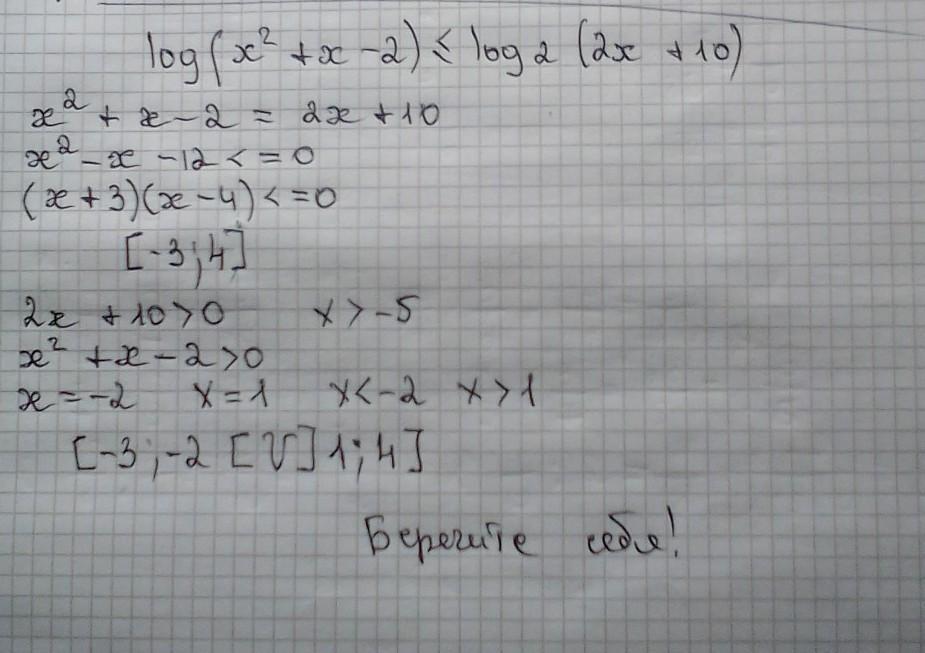 log(x² + x - 2) ≤ log 2 (2x + 10)
x² + x - 2 = 2x + 10
x² - x - 12 < = 0
(x + 3)(x - 4) < = 0
[-3; 4]
2x + 10 > 0 x > -5
x² + x - 2 > 0
x = -2 x = 1 x < -2 x > 1
[-3; -2 [ U ] 1; 4]
Берегите себя!